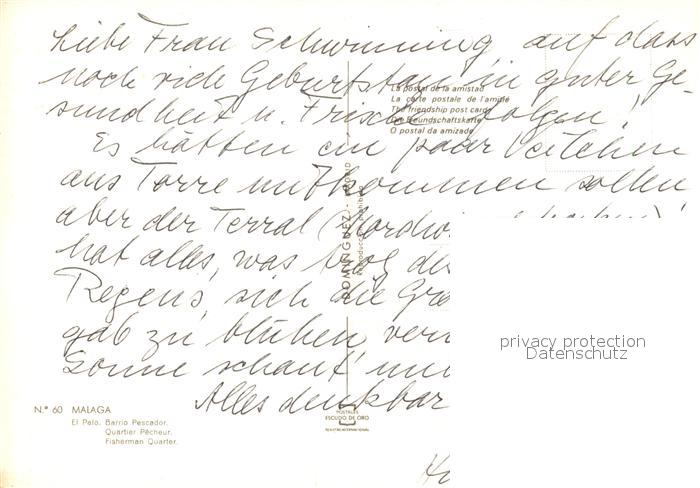 Liebe Frau Schwinning, auf dass
noch viele Geburtstage in guter Ge-
sundheit u. Frische folgen!
Es hätten ein paar Veilchen
aus Torre mitkommen sollen
aber der Terral
hat alles, was trotz des
Regens, sich die
gab zu blühen,
Sonne und
Alles denkbar
La postal de la amistad
La carte postale de l'amitié
The friendship post card
Die Freundschaftskarte
O postal da amizade
DOMINGUEZ
N.º 60 MALAGA
El Palo. Barrio Pescador.
Quartier Pêcheur.
Fisherman Quarter.
POSTALES
ESCUDO DE ORO
privacy protection
Datenschutz